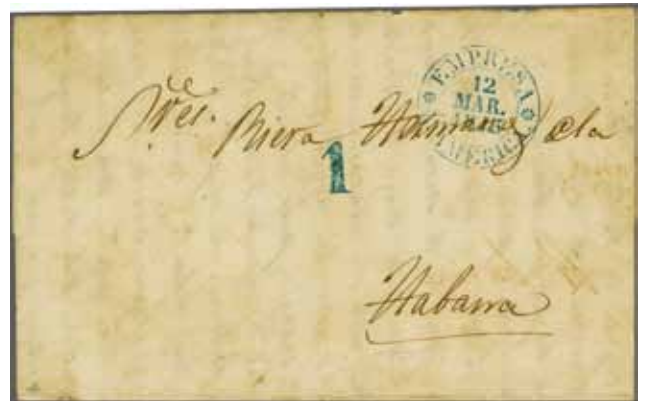 EMPRESA
12
MAR.
AMERICA
Sres. Riera Hermanos y Cla
1
Habana